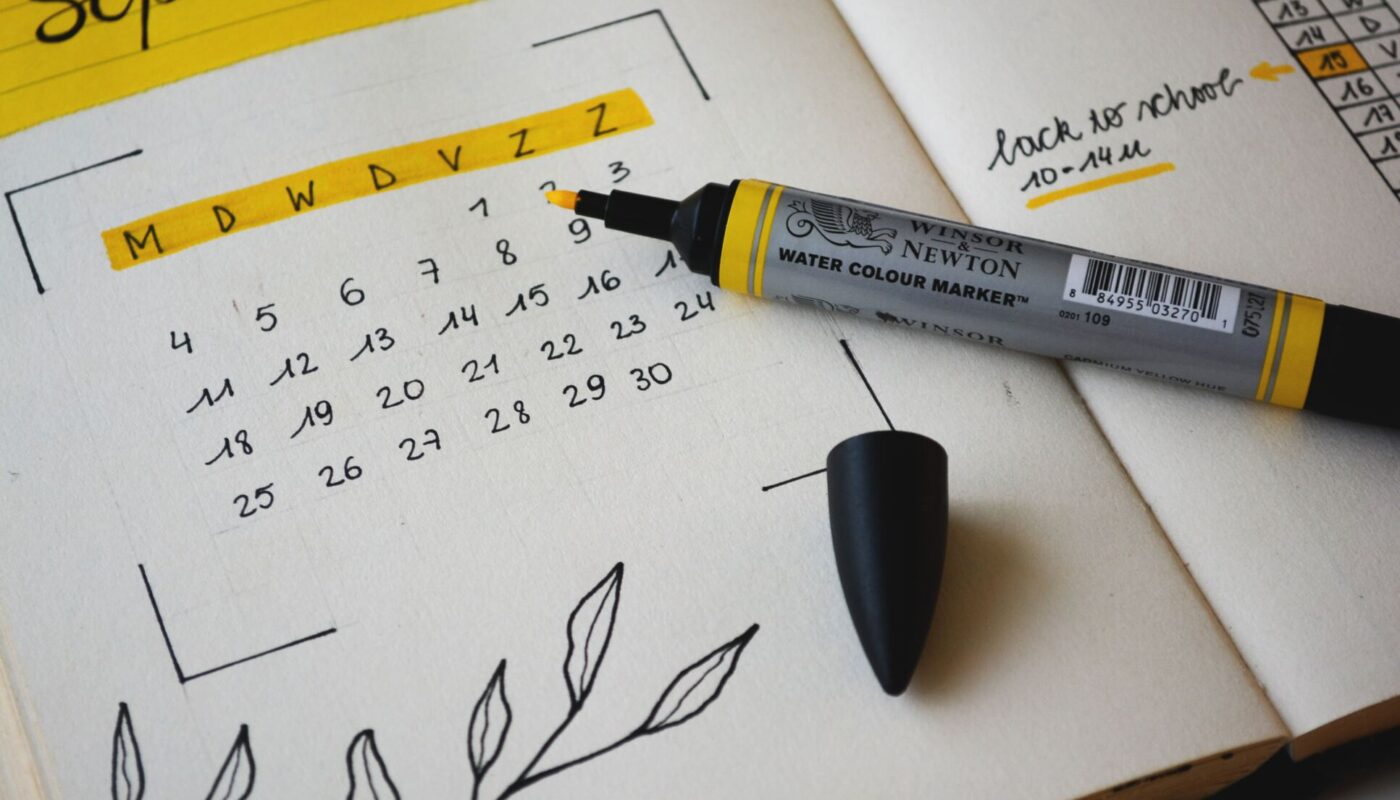 M D W D V Z Z
1 2 3
4 5 6 7 8 9
11 12 13 14 15 16
18 19 20 21 22 23 24
25 26 27 28 29 30
WINSOR
&
NEWTON
WATER COLOUR MARKER™
8 84955 03270 1
0201 109
WINSOR
CADMIUM YELLOW HUE
back to school
10-14u
13 W
14 D
15 V
16
17